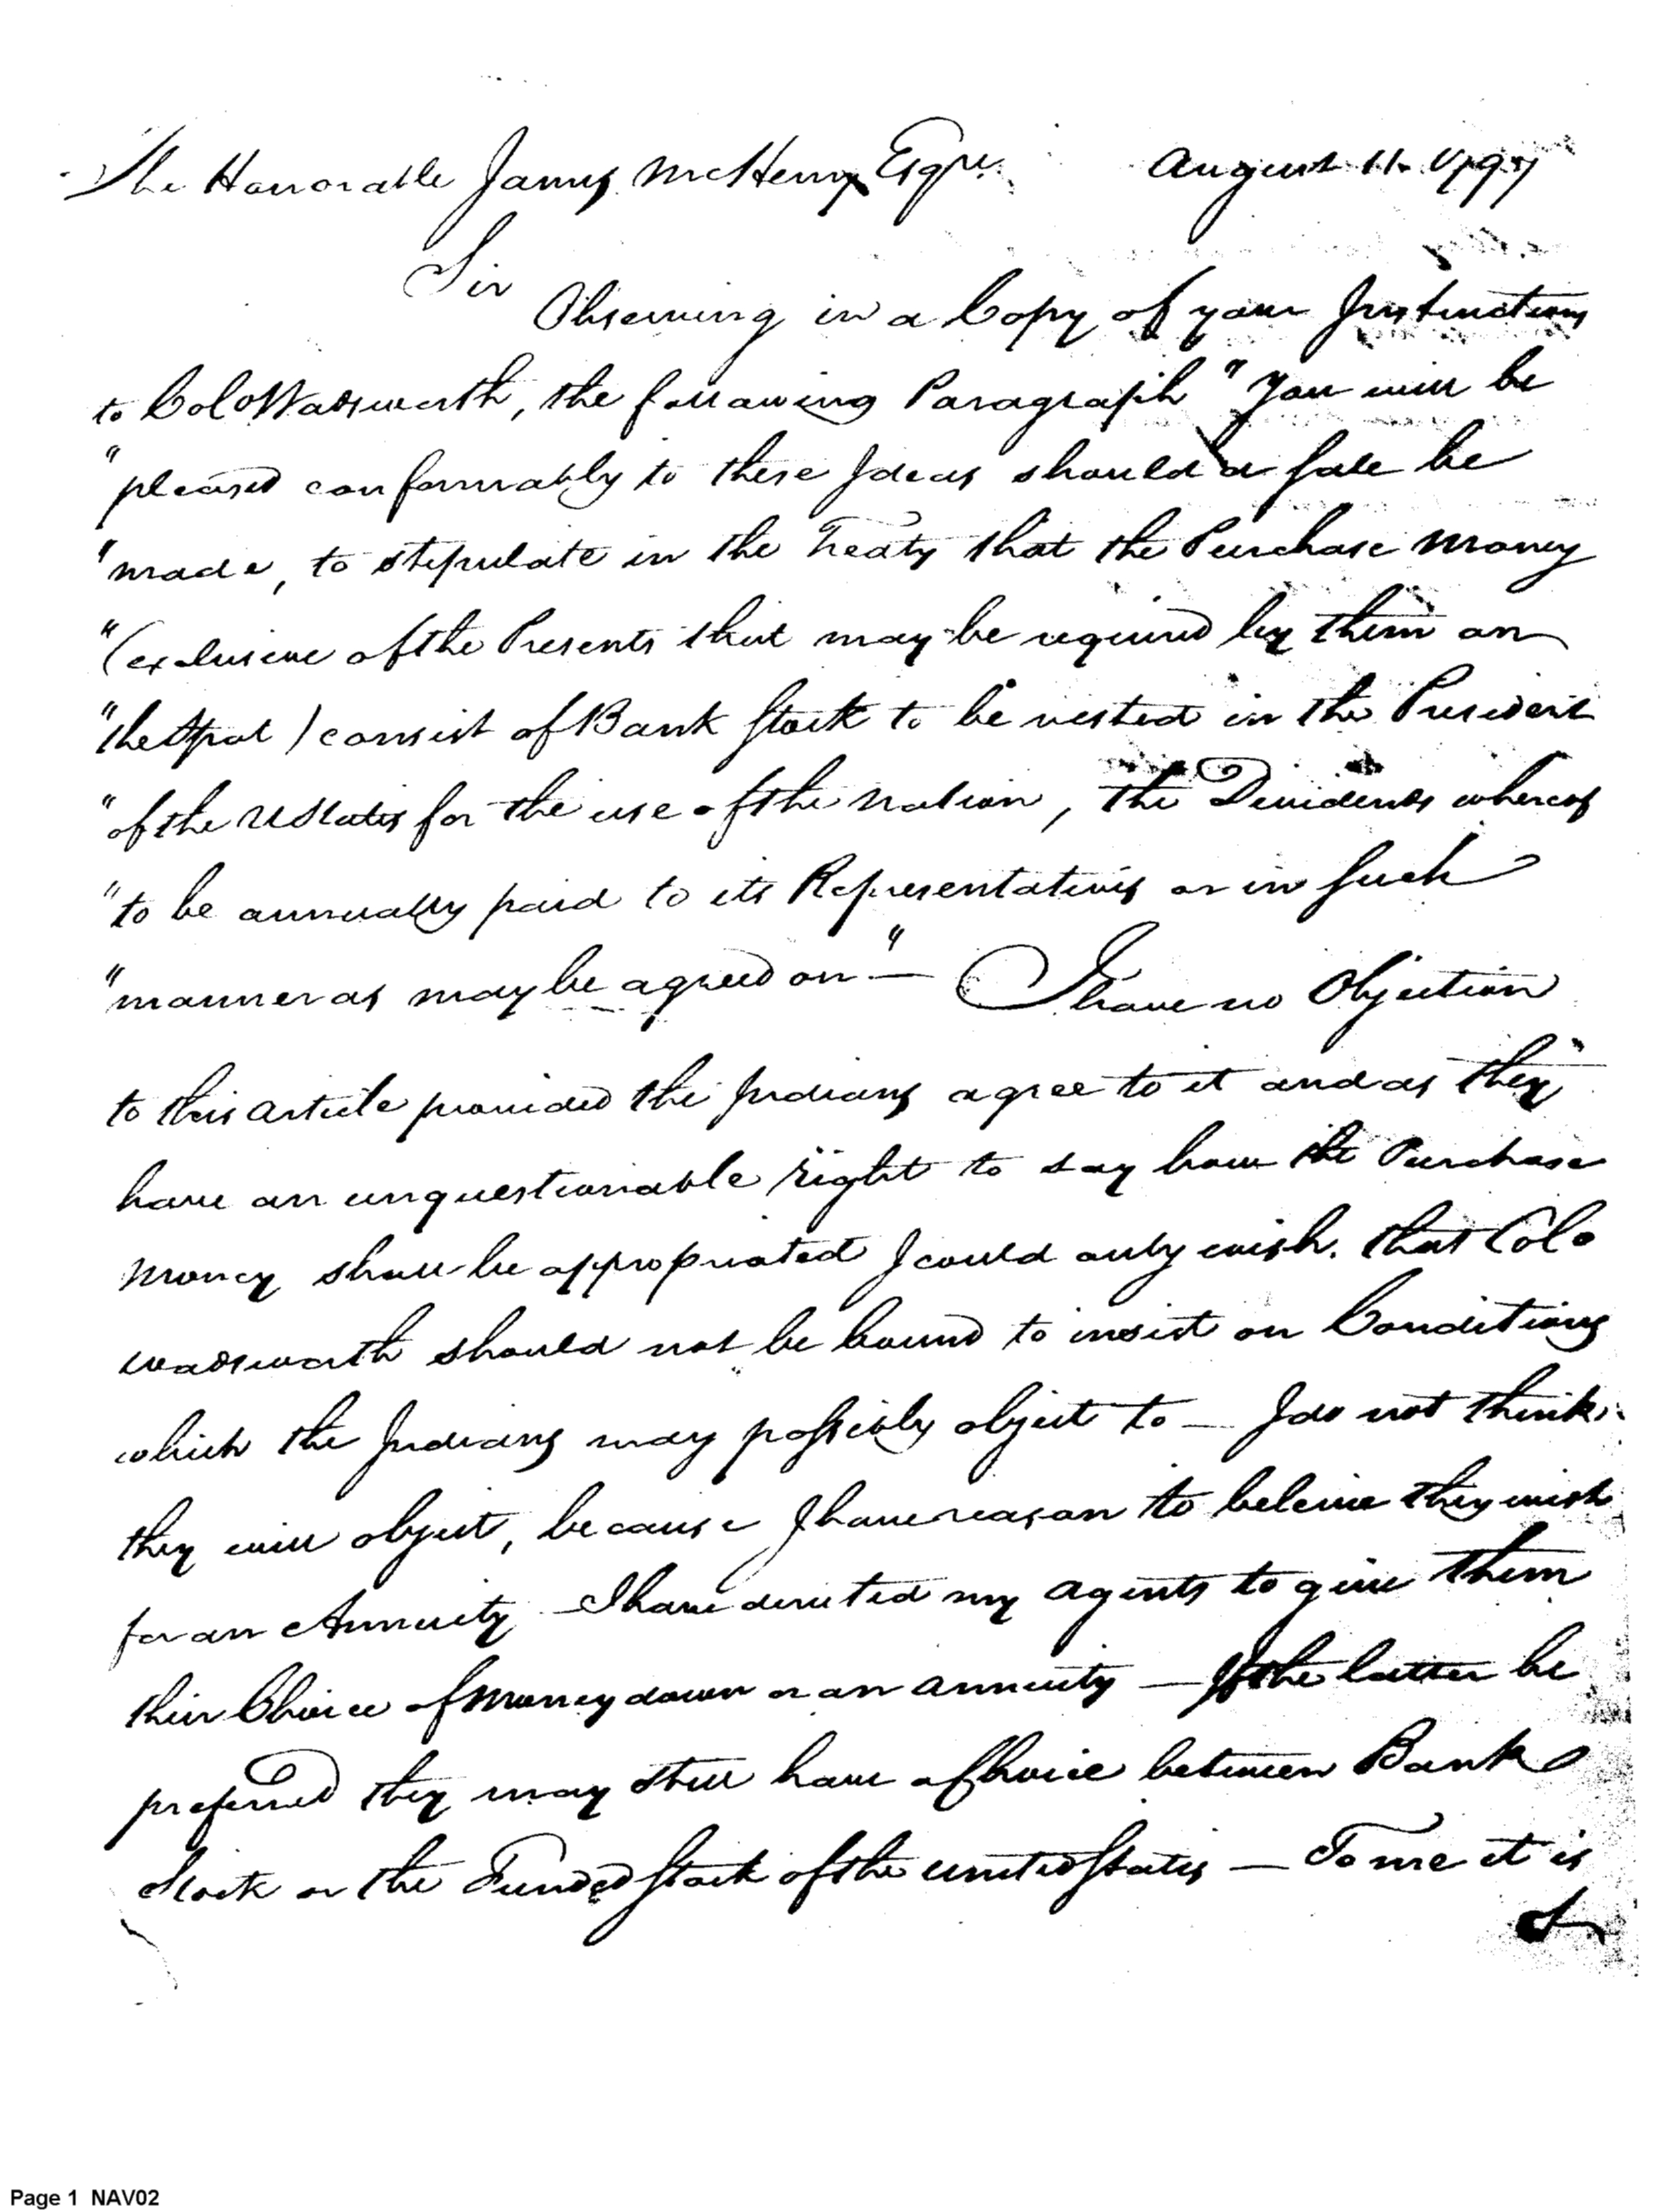 The Honorable James McHenry Esqre. August 11. 1797
Sir
Observing in a Copy of your Instructions
to Colo Wadsworth, the following Paragraph "You will be
"pleased conformably to these Ideas should a sale be
"made, to stipulate in the Treaty that the Purchase money
"(exclusive of the Presents that may be required by them on
"the Spot) consist of Bank Stock to be vested in the President
"of the UStates for the use of the nation, the Dividends whereof
"to be annually paid to its Representatives or in such
"manner as may be agreed on"— I have no Objection
to this article provided the Indians agree to it and as they
have an unquestionable right to say how the Purchase
money shall be appropriated I could only wish. that Colo
wadsworth should not be bound to insist on Conditions
which the Indians may possibly object to — I do not think
they will object, because I have reason to beleive they wish
for an Annuity — I have directed my agents to give them
their Choice of money down or an annuity — If the latter be
preferred they may still have a Choice between Bank
Stock or the Funded Stock of the united States — To me it is
Page 1 NAV02